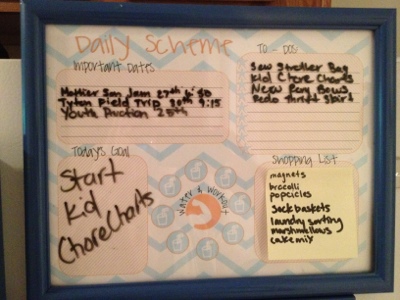 Daily Scheme
Important Dates
Mother Son Jam 27th 6:30
Tyton Field Trip 30th 9:15
Youth Auction 25th
To-Dos
Sew Stroller Bag
Kid Chore Charts
New Rory Bows
Redo Thrift Skirt
Today's Goal
Start
Kid
Chore Charts
water & workout
Shopping List
magnets
brocolli
popcicles
sock baskets
laundry sorting
marshmallows
cake mix